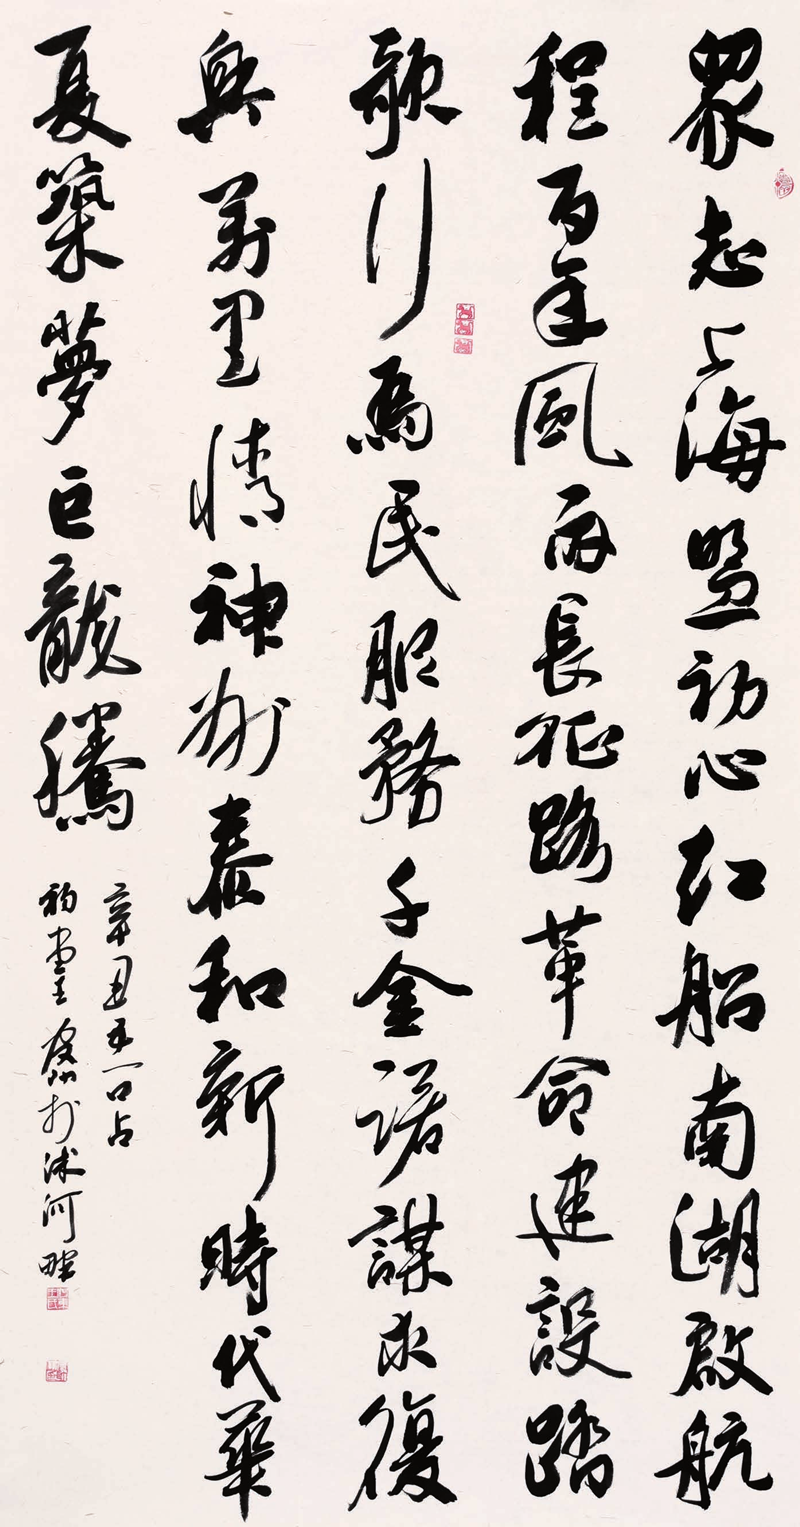 眾志上海盟初心紅船南湖啟航
程百年風雨長征路革命建設踏
歌行為民服務千金諾謀求復
興萬里情神州泰和新時代華
夏築夢巨龍騰
辛丑年口占
於沭河畔